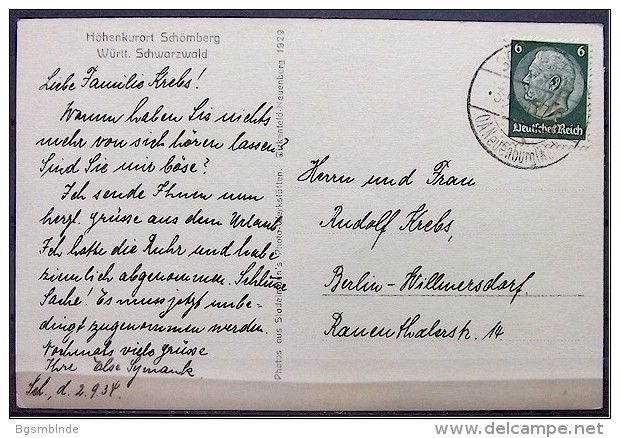 Höhenkurort Schömberg
Württ. Schwarzwald
Liebe Familie Krebs!
Warum haben Sie nichts
mehr von sich hören lassen?
Sind Sie mir böse?
Ich sende Ihnen nun
herzl. Grüsse aus dem Urlaub.
Ich hatte die Ruhr und habe
ziemlich abgenommen. Schlimme
Sache! Es muss jetzt unbe-
dingt zugenommen werden.
Nochmals viele Grüsse
Ihre Else Symank
Sch., d. 2.9.34
Photos aus Stadelmann's Photo-Werkstätten, Neuenburg 1929
6 6
Deutsches Reich
(OA Neuenburg
Herrn und Frau
Rudolf Krebs,
Berlin-Willmersdorf.
Rauenthalerstr. 14.
Bgsmblnde
delcampe.net